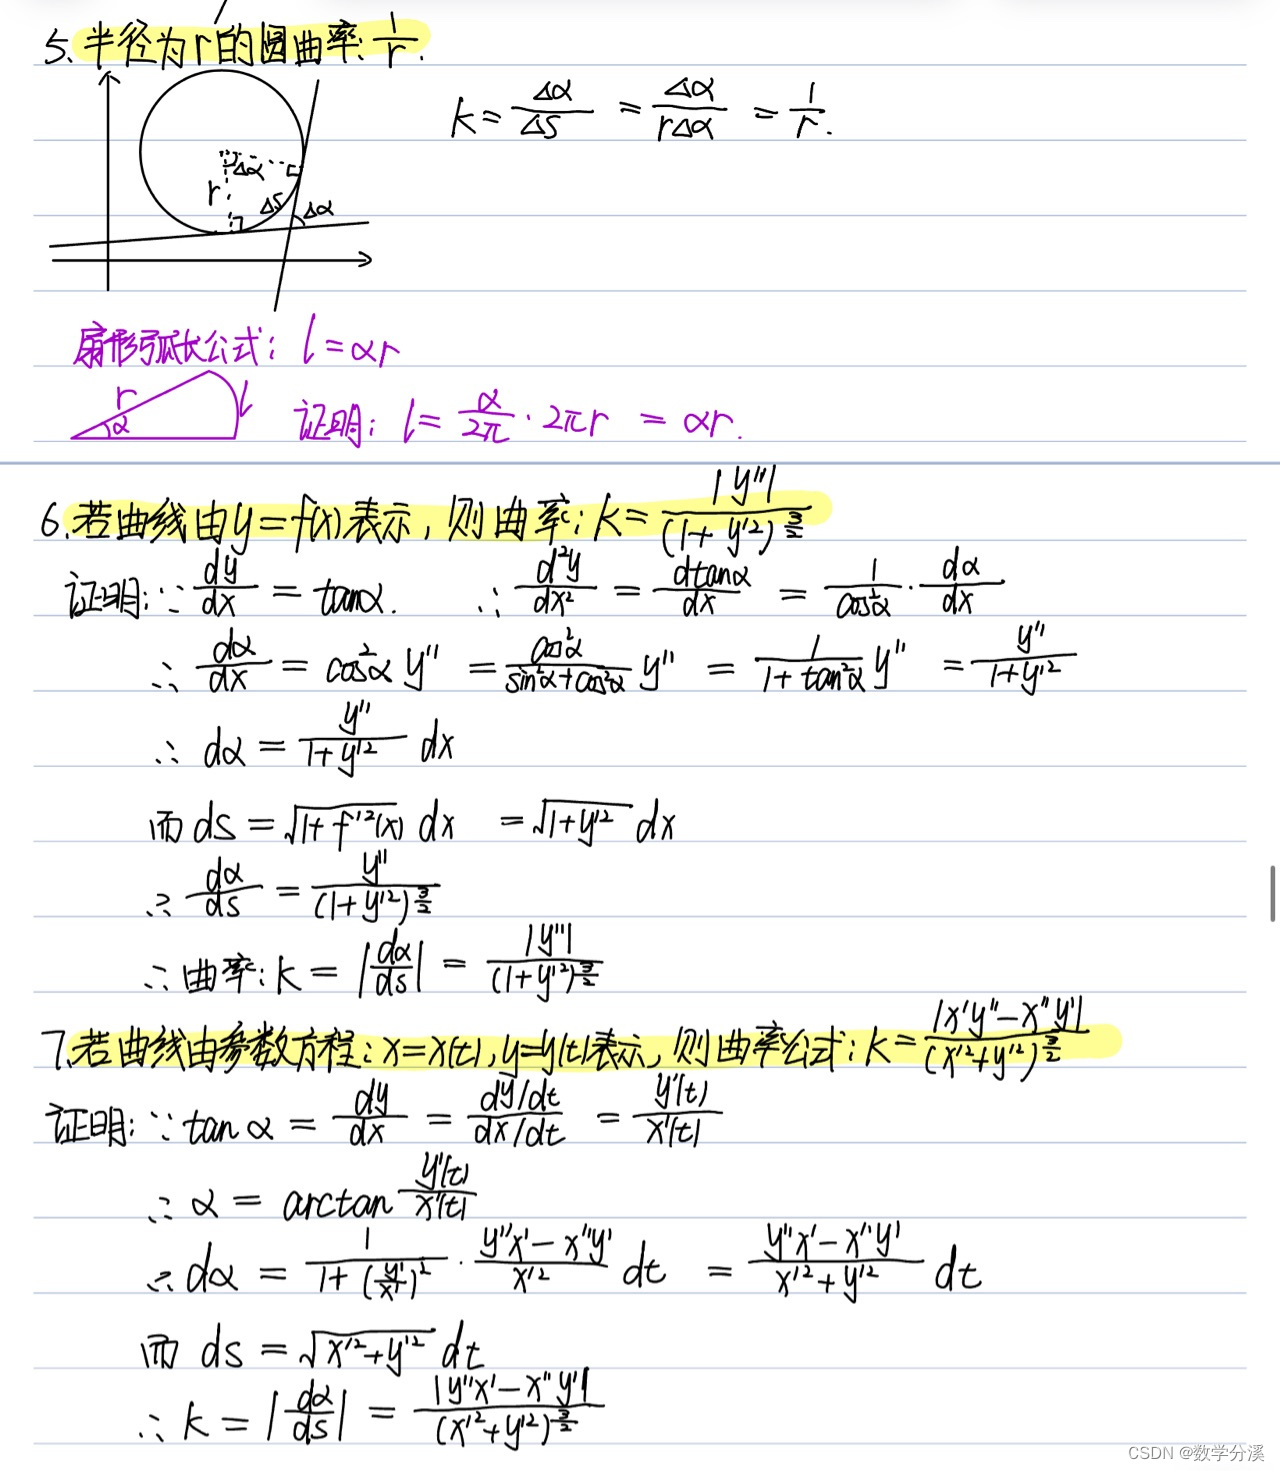 5. 半径为r的圆曲率: 1/r.
k = Δα/Δs = Δα/(rΔα) = 1/r.
Δα
r
Δs
Δα
扇形弧长公式: l = αr
r
α
l
证明: l = α/2π · 2πr = αr.
6. 若曲线由y = f(x)表示, 则曲率: k = |y''|/(1+y'²)^(3/2)
证明: ∵ dy/dx = tanα. ∴ d²y/dx² = dtanα/dx = 1/cos²α · dα/dx
∴ dα/dx = cos²α y'' = cos²α/(sin²α+cos²α) y'' = 1/(1+tan²α) y'' = y''/(1+y'²)
∴ dα = y''/(1+y'²) dx
而 ds = √(1+f'²(x)) dx = √(1+y'²) dx
∴ dα/ds = y''/(1+y'²)^(3/2)
∴ 曲率: k = |dα/ds| = |y''|/(1+y'²)^(3/2)
7. 若曲线由参数方程: x=x(t), y=y(t)表示, 则曲率公式: k = |x'y''-x''y'|/(x'²+y'²)^(3/2)
证明: ∵ tanα = dy/dx = (dy/dt)/(dx/dt) = y'(t)/x'(t)
∴ α = arctan y'(t)/x'(t)
∴ dα = 1/(1+(y'/x')²) · (y''x'-x''y')/x'² dt = (y''x'-x''y')/(x'²+y'²) dt
而 ds = √(x'²+y'²) dt
∴ k = |dα/ds| = |y''x'-x''y'|/(x'²+y'²)^(3/2)
CSDN @数学分溪